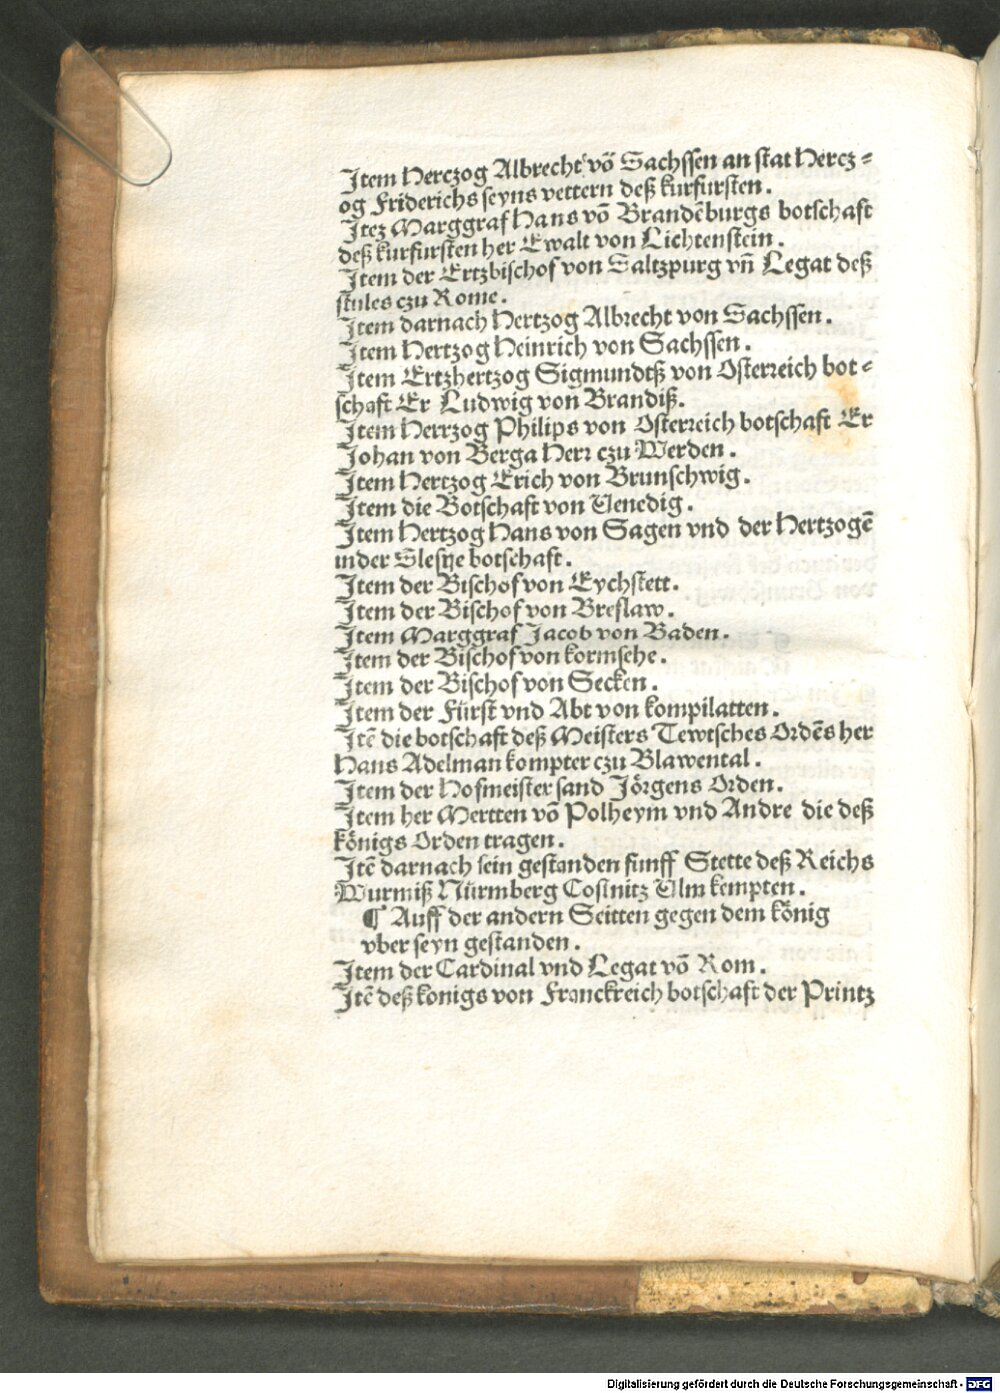 Item Herczog Albrecht võ Sachssen an stat Hercz=
og Friderichs seyns vettern deß kurfursten.
Itez Marggraf Hans võ Brandẽburgs botschaft
deß kurfursten her Ewalt von Lichtenstein.
Item der Ertzbischof von Saltzpurg vñ Legat deß
stules czu Rome.
Item darnach Hertzog Albrecht von Sachssen.
Item Hertzog Heinrich von Sachssen.
Item Ertzhertzog Sigmundtß von Osterreich bot=
schaft Er Ludwig von Brandiß.
Item Herrzog Philips von Osterreich botschaft Er
Johan von Berga Herr czu Werden.
Item Hertzog Erich von Brunschwig.
Item die Botschaft von Venedig.
Item Hertzog Hans von Sagen vnd der Hertzogẽ
inder Slesye botschaft.
Item der Bischof von Eychstett.
Item der Bischof von Breslaw.
Item Marggraf Jacob von Baden.
Item der Bischof von kormsehe.
Item der Bischof von Secken.
Item der Fürst vnd Abt von kompilatten.
Itẽ die botschaft deß Meisters Tewtsches Ordẽs her
Hans Adelman kompter czu Blawental.
Item der Hofmeister sand Jörgens Orden.
Item her Mertten võ Polheym vnd Andre die deß
königs Orden tragen.
Itẽ darnach sein gestanden funff Stette deß Reichs
Wurmiß Nürmberg Costnitz Vlm kempten.
¶ Auff der andern Seitten gegen dem könig
vber seyn gestanden.
Item der Cardinal vnd Legat võ Rom.
Itẽ deß konigs von Franckreich botschaft der Printz
Digitalisierung gefördert durch die Deutsche Forschungsgemeinschaft - DFG